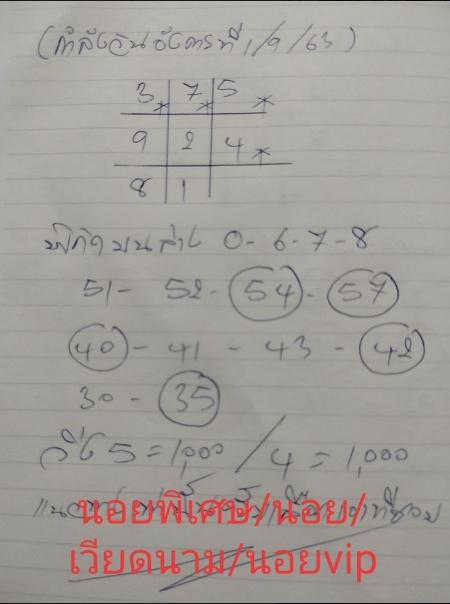 (กำลังวันอังคารที่ 1/9/63)
3 7 5
9 2 4
8 1
พิกัดบนล่าง 0-6-7-8
51- 52- 54- 57
40 - 41 - 43 - 42
30 - 35
วิ่ง 5 = 1,000 / 4 = 1,000
นอยพิเศษ/นอย/
เวียดนาม/นอยvip